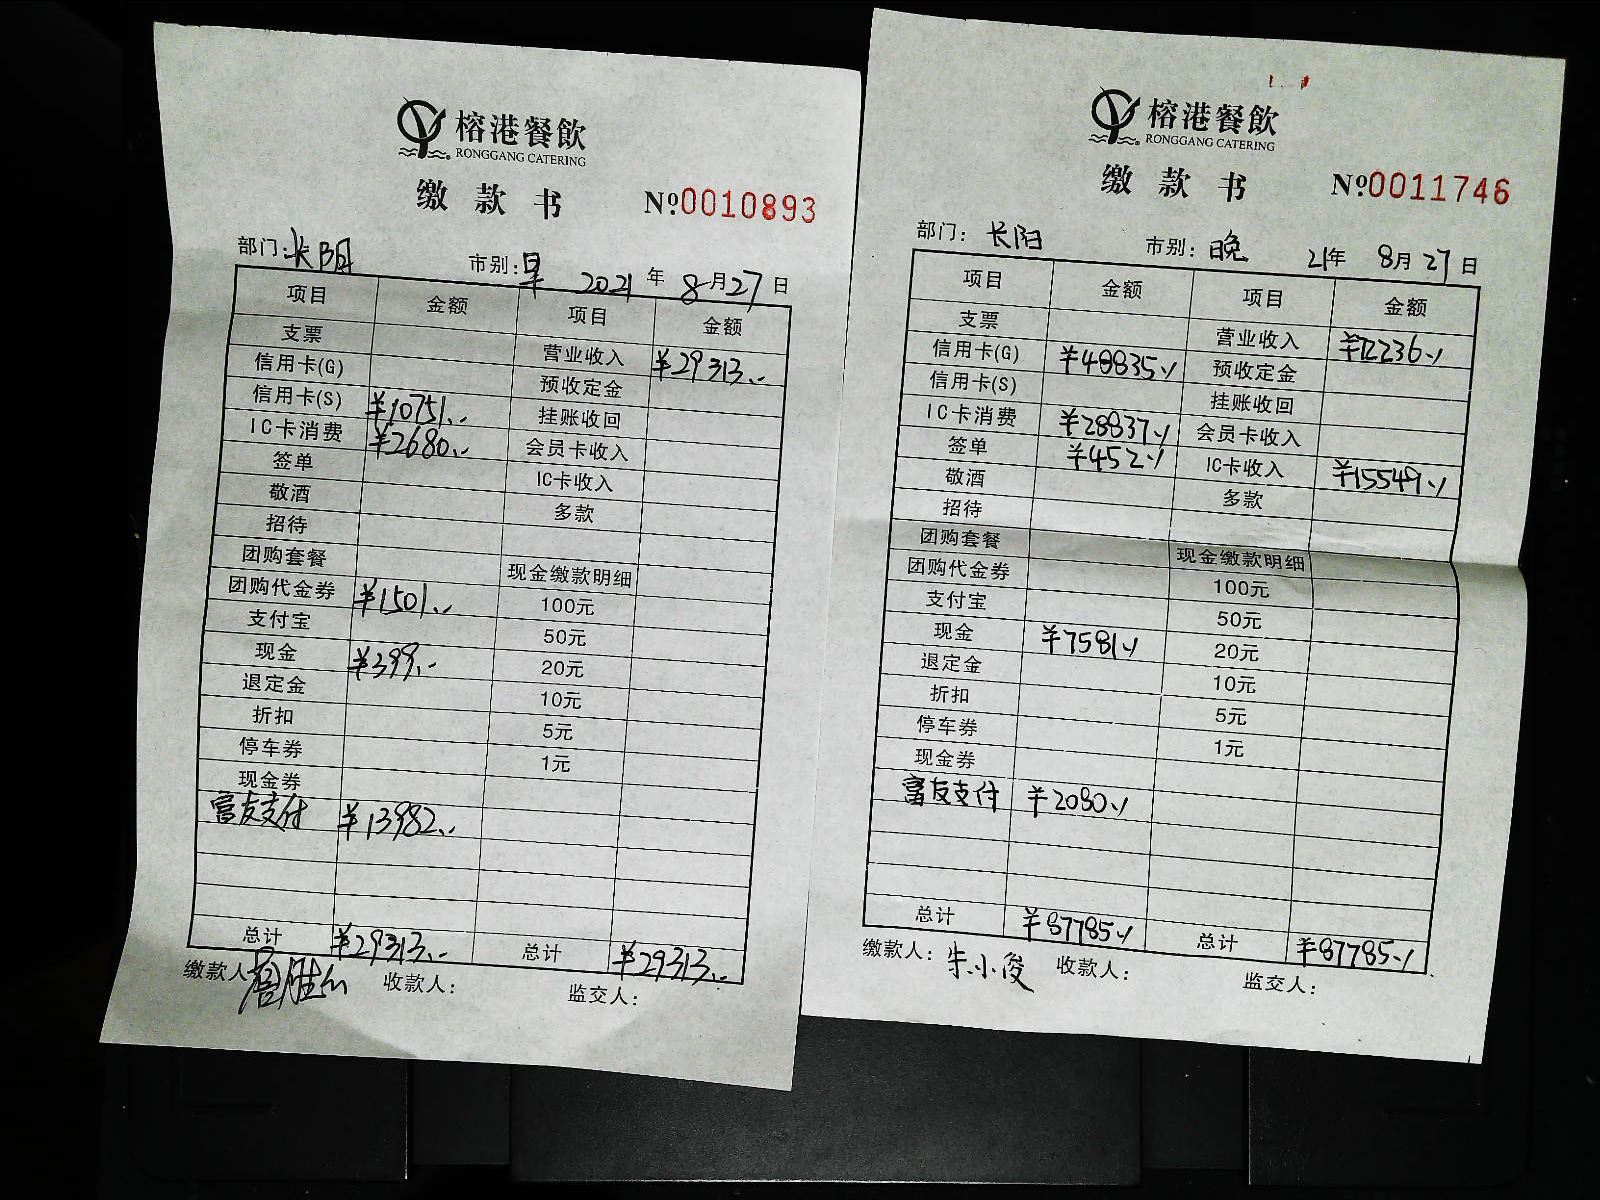 榕港餐飲
RONGGANG CATERING
缴款书 №0010893
部门:长阳 市别:早 2021年8月27日
项目 金额 项目 金额
支票 营业收入 ¥29313.-
信用卡(G) 预收定金
信用卡(S) ¥10751.- 挂账收回
IC卡消费 ¥2680.- 会员卡收入
签单 IC卡收入
敬酒 多款
招待
团购套餐 现金缴款明细
团购代金券 ¥1501.- 100元
支付宝 50元
现金 ¥399.- 20元
退定金 10元
折扣 5元
停车券 1元
现金券
富友支付 ¥13982.-
总计 ¥29313.- 总计 ¥29313.-
缴款人 收款人: 监交人:
榕港餐飲
RONGGANG CATERING
缴款书 №0011746
部门: 长阳 市别: 晚 21年 8月27日
项目 金额 项目 金额
支票 营业收入 ¥72236.-
信用卡(G) ¥48835.- 预收定金
信用卡(S) 挂账收回
IC卡消费 ¥28837.- 会员卡收入
签单 ¥452.- IC卡收入 ¥15549.-
敬酒 多款
招待
团购套餐 现金缴款明细
团购代金券 100元
支付宝 50元
现金 ¥7581.- 20元
退定金 10元
折扣 5元
停车券 1元
现金券
富友支付 ¥2080.-
总计 ¥87785.- 总计 ¥87785.-
缴款人: 朱小俊 收款人: 监交人: